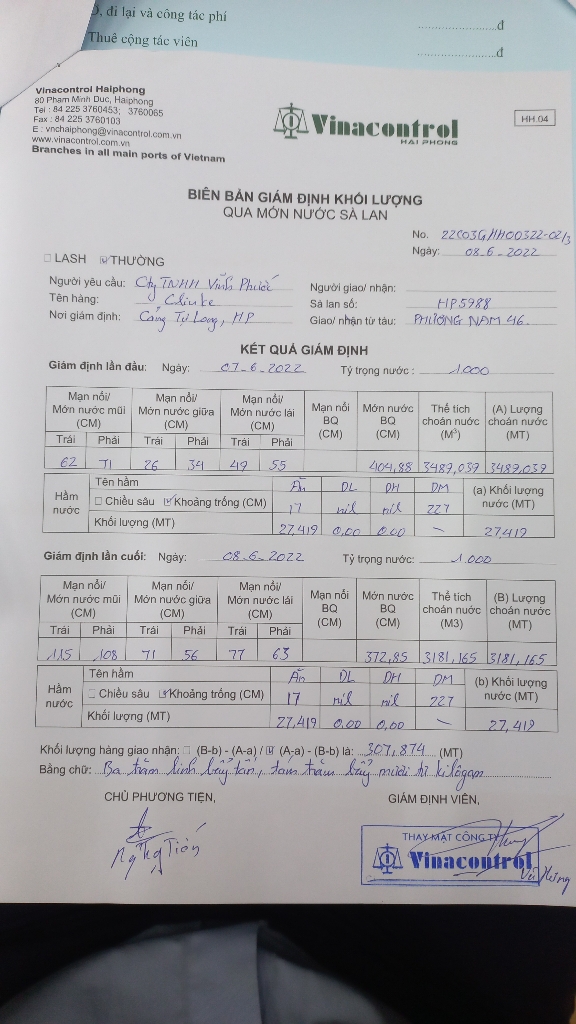 , đi lại và công tác phí ...........................đ
Thuê cộng tác viên ...........................đ
Vinacontrol Haiphong
80 Pham Minh Duc, Haiphong
Tel : 84 225 3760453; 3760065
Fax : 84 225 3760103
E : vnchaiphong@vinacontrol.com.vn
www.vinacontrol.com.vn
Branches in all main ports of Vietnam
Vinacontrol
HAI PHONG
HH.04
BIÊN BẢN GIÁM ĐỊNH KHỐI LƯỢNG
QUA MỚN NƯỚC SÀ LAN
No. 22C03GHH00322-02/3
Ngày: 08-6-2022
LASH THƯỜNG
Người yêu cầu: Cty TNHH Vĩnh Phước Người giao/ nhận:
Tên hàng: Clinke Sà lan số: HP5988
Nơi giám định: Cảng Tự Long, HP Giao/ nhận từ tàu: PHƯƠNG NAM 46
KẾT QUẢ GIÁM ĐỊNH
Giám định lần đầu: Ngày: 07-6-2022 Tỷ trọng nước : 1.000
Mạn nổi/ Mớn nước mũi (CM) Mạn nổi/ Mớn nước giữa (CM) Mạn nổi/ Mớn nước lái (CM) Mạn nổi BQ (CM) Mớn nước BQ (CM) Thể tích choán nước (M³) (A) Lượng choán nước (MT)
Trái Phải Trái Phải Trái Phải
62 71 26 34 49 55 404,88 3489,039 3489,039
Hầm nước Tên hầm Ăn DL DH DM (a) Khối lượng nước (MT)
Chiều sâu Khoảng trống (CM) 17 nil nil 227
Khối lượng (MT) 27,419 0,00 0,00 - 27,419
Giám định lần cuối: Ngày: 08-6-2022 Tỷ trọng nước: 1.000
Mạn nổi/ Mớn nước mũi (CM) Mạn nổi/ Mớn nước giữa (CM) Mạn nổi/ Mớn nước lái (CM) Mạn nổi BQ (CM) Mớn nước BQ (CM) Thể tích choán nước (M3) (B) Lượng choán nước (MT)
Trái Phải Trái Phải Trái Phải
115 108 71 56 77 63 372,85 3181,165 3181,165
Hầm nước Tên hầm Ăn DL DH DM (b) Khối lượng nước (MT)
Chiều sâu Khoảng trống (CM) 17 nil nil 227
Khối lượng (MT) 27,419 0,00 0,00 - 27,419
Khối lượng hàng giao nhận: (B-b) - (A-a) / (A-a) - (B-b) là: 307,874 (MT)
Bằng chữ: Ba trăm linh bảy tấn, tám trăm bảy mươi tư kilôgam
CHỦ PHƯƠNG TIỆN, GIÁM ĐỊNH VIÊN,
THAY MẶT CÔNG TY
Vinacontrol